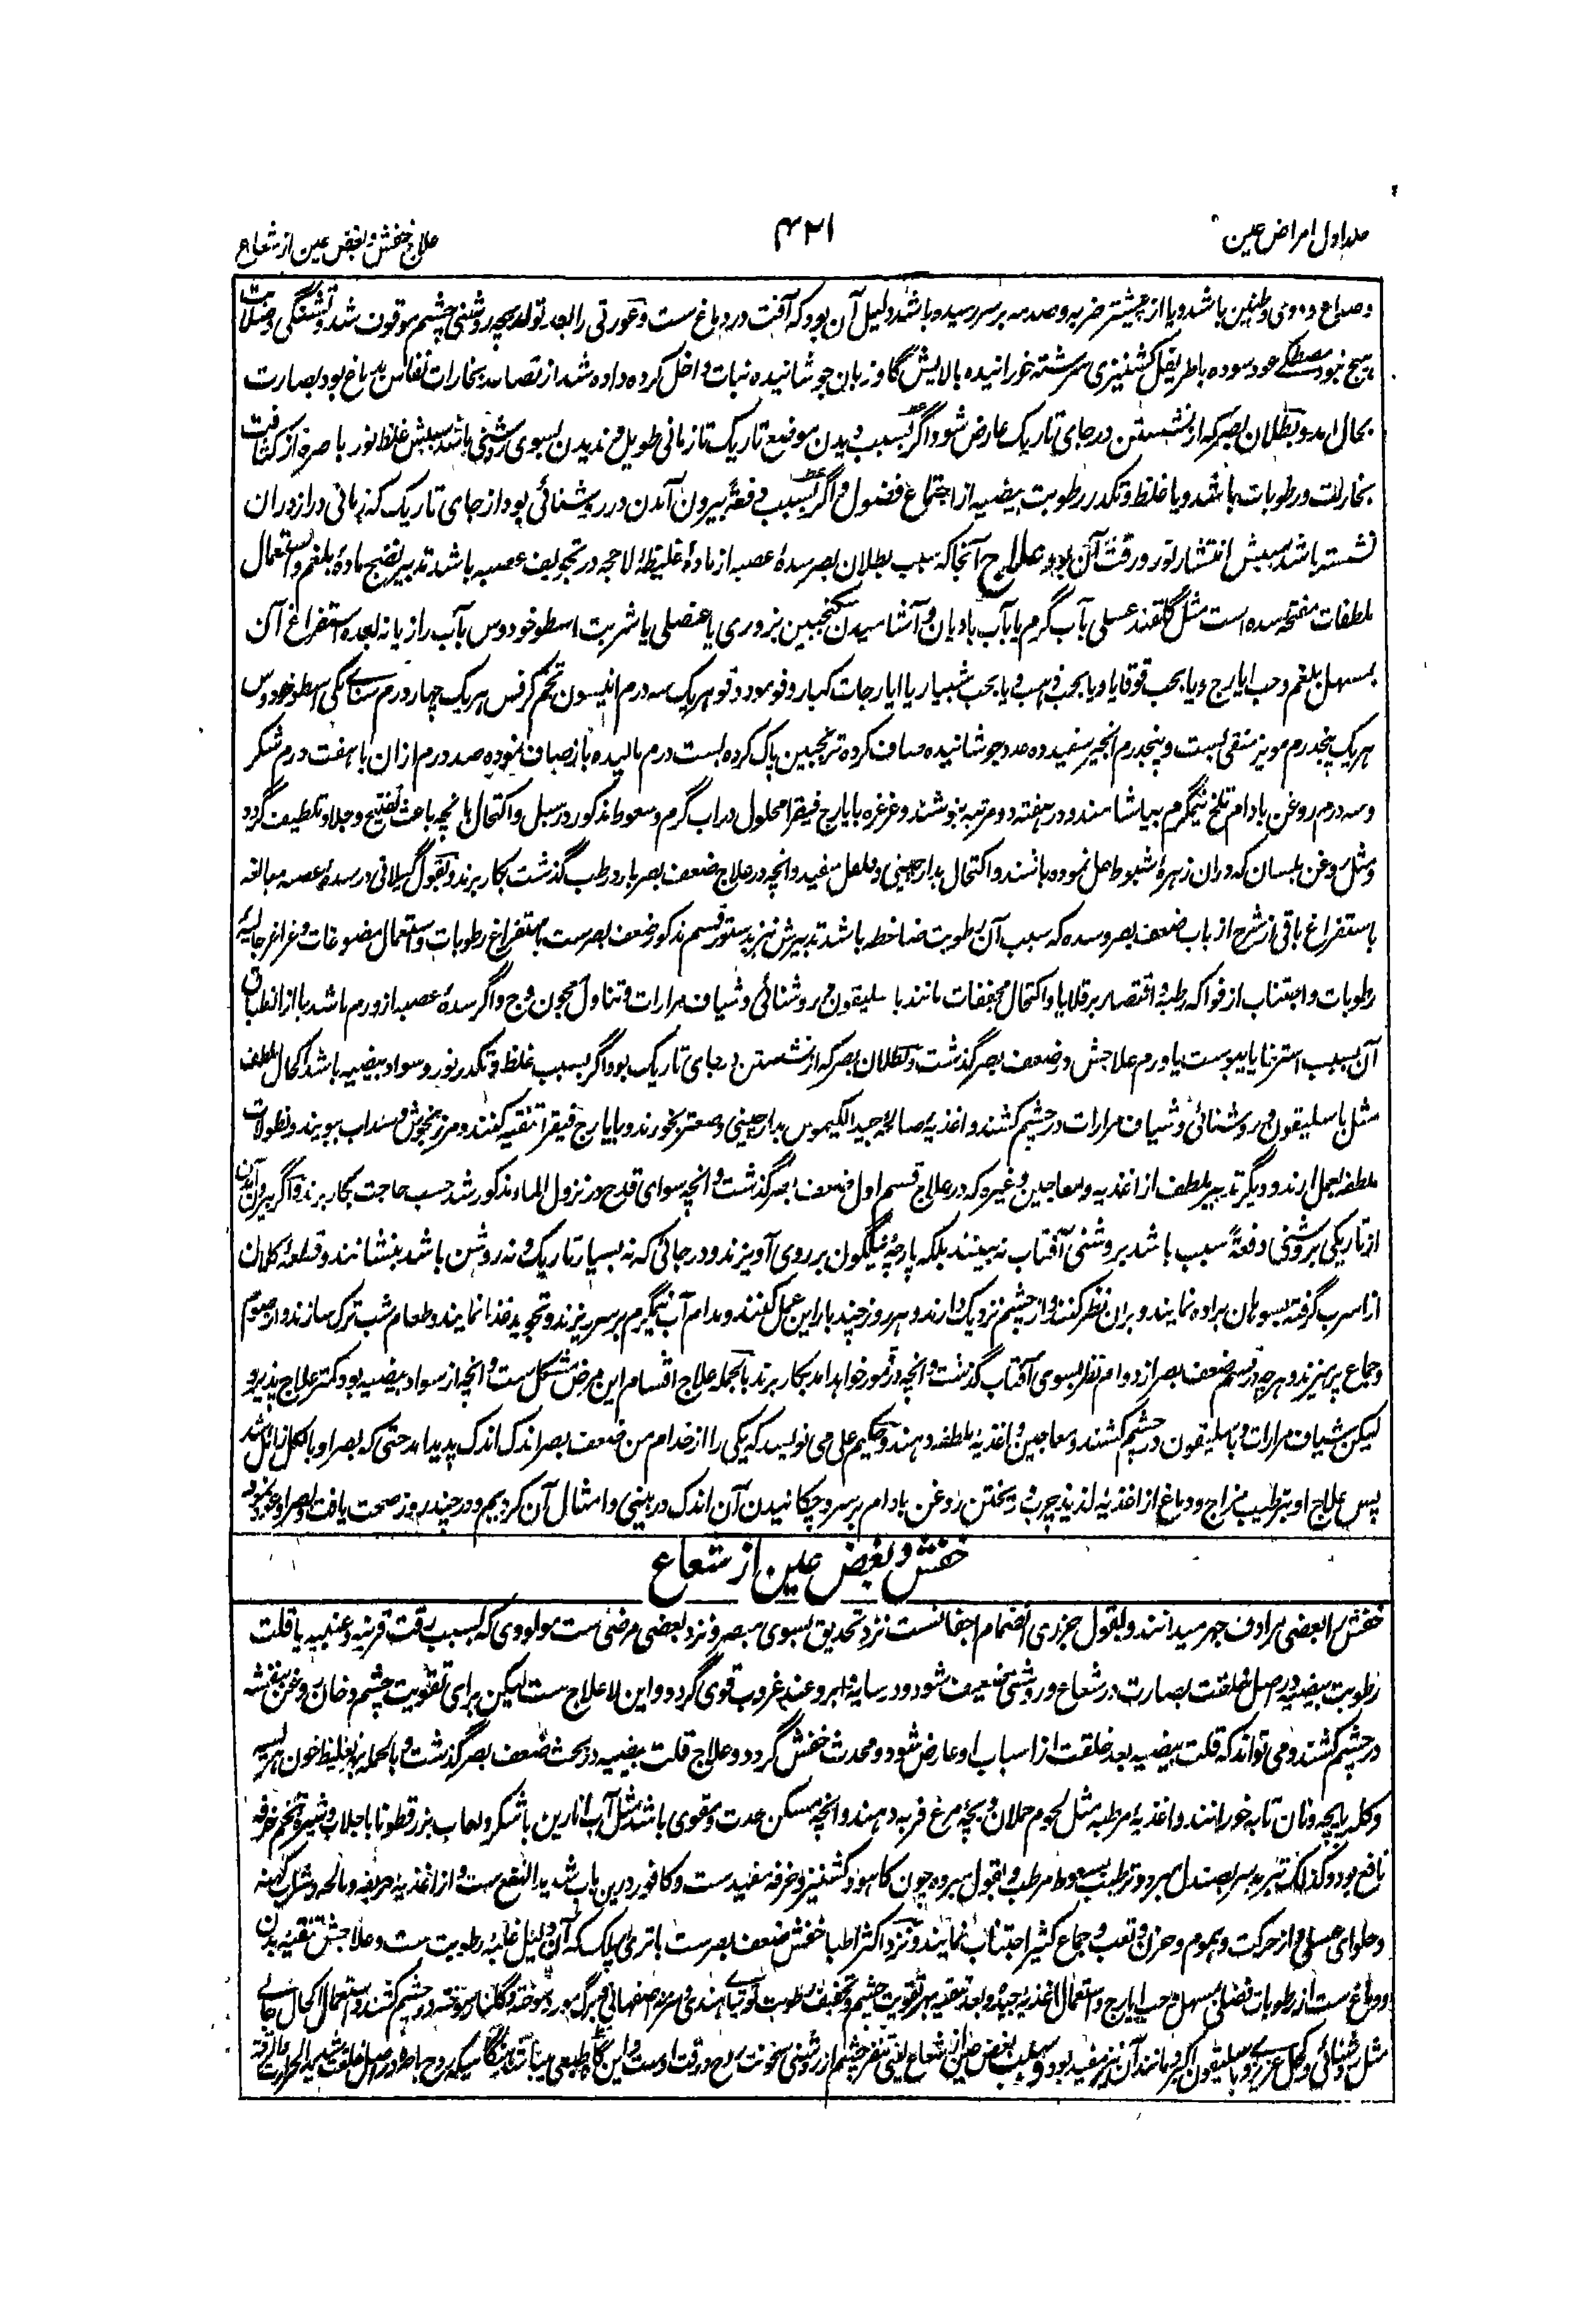 جلد اول امراض عین
۴۲۱
علاج خفش و بغض عین از شعاع
و صداع و دوی و طنین باشد و یا از پیشتر ضربه و صدمه بر سر رسیده باشد دلیل آن بود که آفت در دماغ ست و عورتی را بعد تولد بچه روشنی چشم موقوف شد و تشنگی و صلابت
هیچ نبود مصطکی عود سوده باطریفل کشنیزی سرشته خورانیده بالایش گاوزبان جوشانیده نبات داخل کرده داده شد از تصاعد بخارات نفاس بدماغ بود بصارت
بحال امد و بطلان بصر که از نشستن در جای تاریک عارض شود اگر بسبب دیدن موضع تاریک تا زمانی طویل و ندیدن بسوی روشنی باشد سببش غلظ نور باصره از کثافت
بخارات و رطوبات باشد و یا غلظ و تکدر رطوبت بیضیه از اجتماع فضول و اگر بسبب دفعةً بیرون آمدن در روشنائی بود از جای تاریک که زمانی دراز دران
نشسته باشد سببش انتشار نور و رقت آن بود علاج آنجا که سبب بطلان بصر سدهٔ عصبه از مادهٔ غلیظهٔ لاحجه در تجویف عصبه باشد تدبیر نضج مادهٔ بلغم و استعمال
ملطفات مفتحه سده است مثل گلقند عسلی بآب گرم یا بآب بادیان و آشامیدن سکنجبین بزوری یا عنصلی یا شربت اسطوخودوس بآب رازیانه بعده استفراغ آن
بمسهل بلغم و حب ایارج و یا بحب قوقایا و یا بحب ذهب و یا بحب شبیار یا ایارجات کبار و فو مو دوقو هریک سه درم انیسون تخم کرفس هریک چهار درم سنای مکی اسطوخودوس
هریک پنجدرم مویز منقی بست و پنجدرم انجیر سفید ده عدد جوشانیده صاف کرده ترنجبین پاک کرده بست درم مالیده باز صاف نموده صد درم ازان با هفت درم شکر
و سه درم روغن بادام تلخ نیمگرم بیاشامند و در هفته دو مرتبه بنوشند و غرغره بایارج فیقرا محلول در اب گرم و سعوط مذکور در سبل و اکتحال بانچه باعث تفتیح و جلا و تلطیف گردد
و مثل روغن بلسان که دران زهرهٔ شبوط حل نموده باشند و اکتحال بدارچینی و فلفل مفید و انچه در علاج ضعف بصر بارد رطب گذشت بکار برند و بقول گیلانی در سدهٔ عصبه مبالغه
باستفراغ باقی از شرح از باب ضعف بصر و سده که سبب آن رطوبت ضاغطه باشد تدبیرش نیز بدستور قسم مذکور ضعف بصرست باستفراغ رطوبات و استعمال مضوغات و غراغر جالبهٔ
رطوبات و اجتناب از فواکه رطبه و اقتصار بر قلایا و اکتحال مجففات مانند باسلیقون و روشنائی و شیاف مرارات و تناول معجون وج و اگر سدهٔ عصبه از ورم باشد یا از انطباق
آن بسبب استرخا یا یبوست یا ورم علاجش در ضعف بصر گذشت و بطلان بصر که از نشستن در جای تاریک بود اگر بسبب غلظ و تکدر نور و سواد بیضیه باشد اکحال ملطف
مثل باسلیقون و روشنائی و شیاف مرارات در چشم کشند و اغذیهٔ صالحهٔ جید الکیموس بدارچینی و صعتر بخورند و بایارج فیقرا تنقیه کنند و مرزنجوش و سنداب بویند و نطولات
ملطفه بعمل ارند و دیگر تدبیر ملطف از اغذیه و معاجین و غیره که در علاج قسم اول ضعف بصر گذشت و انچه سوای قدح در نزول الماء مذکور شد حسب حاجت بکار برند و اگر بیرون آمدن
از تاریکی بروشنی دفعةً سبب باشد بروشنی آفتاب نه بینند بلکه پارچهٔ نیلگون بر روی آویزند و در جائی که نه بسیار تاریک و نه روشن باشد بنشانند و قطعهٔ کلان
از اسرب گرفته بسوهان براده نمایند و بران نظر کنند و از چشم نزدیک دارند و هر روز چند بار این عمل کنند و مدام آب نیمگرم بر سر ریزند و تجوید غذا نمایند و طعام شب ترک سازند و از صوم
و جماع پرهیزند و هرچه در قسم ضعف بصر از دوام نظر بسوی آفتاب گذشت و انچه در قمور خواهد امد بکار برند بالجمله علاج اقسام این مرض مشکل ست و انچه از سواد بیضیه بود کمتر علاج پذیرد
لیکن شیاف مرارات و باسلیقون در چشم کشند و معاجین و اغذیهٔ ملطفه دهند و حکیم علی می نویسد که یکی را از خدام من ضعف بصر اندک اندک پدید امد حتی که بصر او بالکل زائل شد
پس علاج او بترطیب مزاج و دماغ از اغذیهٔ لذیذ چرب و ریختن روغن بادام بر سر و چکانیدن آن اندک در بینی و امثال آن کردیم و در چند روز صحت یافت و بصر او عود نمود
خفش و بغض عین از شعاع
خفش را بعضی مرادف جهر میدانند و بقول جزری انضمام اجفانست نزد تحدیق بسوی مبصر و نزد بعضی مرضی ست مولودی که بسبب رقت قرنیه و عنبیه یا قلت
رطوبت بیضیه در اصل خلقت بصارت در شعاع و روشنی ضعیف شود و در سایه و ابر و عند غروب قوی گردد و این لاعلاج ست لیکن برای تقویت چشم دخان روغن بنفشه
در چشم کشند و می تواند که قلت بیضیه بعد خلقت از اسباب او عارض شود و محدث خفش گردد و علاج قلت بیضیه در بحث ضعف بصر گذشت و بالجمله بهر تغلیظ خون هریسه
و کله پایچه و نان تابه خورانند و اغذیهٔ مرطبه مثل لحوم حملان و بچهٔ مرغ فربه دهند و انچه مسکن حدت و مقوی باشد مثل آب انارین باشکر و لعاب بزرقطونا باجلاب و شیره تخم خرفه
نافع بود و کذلک تبرید سر بصندل مبرد و ترطیب بسعوط مرطب و بقول مبرده چون کاهو و کشنیز و خرفه مفیدست و کافور درین باب شدید النفع ست و از اغذیهٔ حریفه و مالحه و شراب کهنه
و حلوای عسلی و از حرکت و هموم و حزن و تعب و جماع کثیر اجتناب نمایند و نزد اکثر اطبا خفش ضعف بصرست باتری پلک که آن دلیل غلبهٔ رطوبت ست و علاجش تنقیهٔ بدن
و دماغ ست از رطوبات فضلی بمسهل و حب ایارج و استعمال اغذیهٔ جیده و بعد تنقیه بهر تقویت چشم و تجفیف رطوبت توتیای هندی و سرمه اصفهانی و برگ مورد سوخته و گلنار سوخته در چشم کشند و استعمال اکحال جالی
مثل روشنائی و کحل عزیزی و باسلیقون اکبر و مانند آن نیز مفید بود و سبب بغض عین از شعاع یعنی تنفر چشم از روشنی سخونت روح و رقت اوست و این گاه طبیعی میباشد